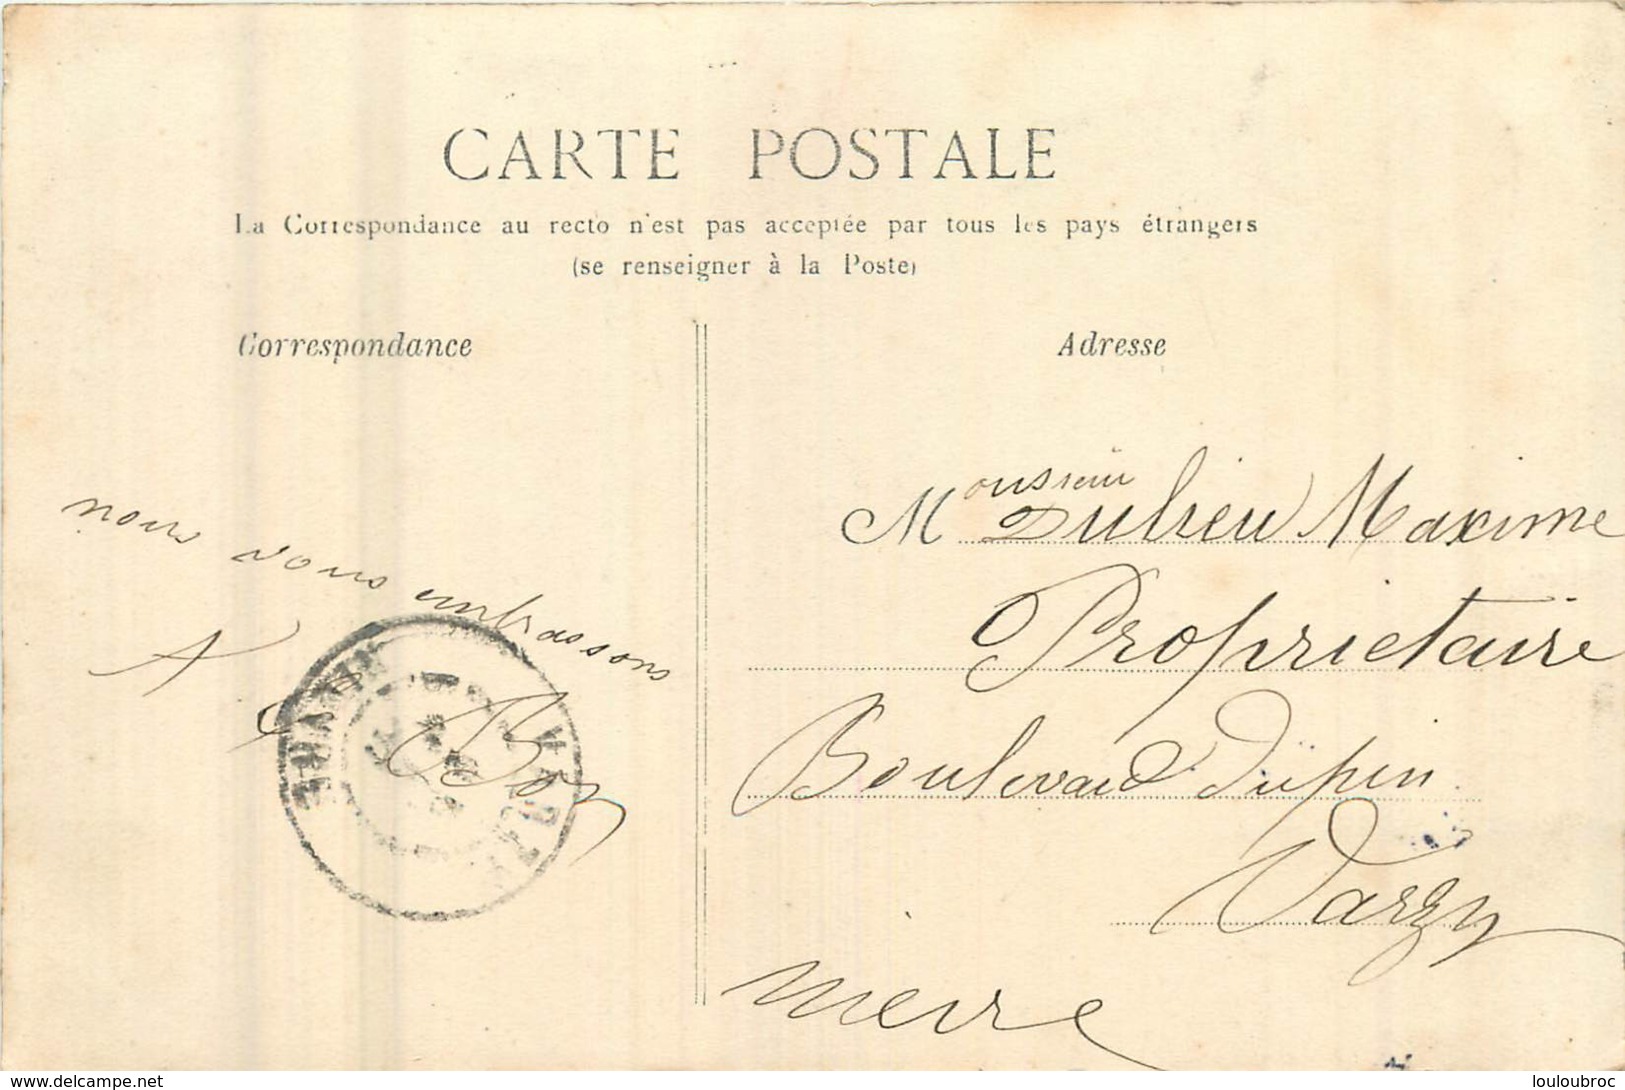 CARTE POSTALE
La Correspondance au recto n'est pas acceptée par tous les pays étrangers
(se renseigner à la Poste)
Correspondance
Adresse
nous vous embrassons
A
Monsieur Dulieu Maxime
Propriétaire
Boulevard Dupin
Varzy
Nievre
VARZY
www.delcampe.net
louloubroc